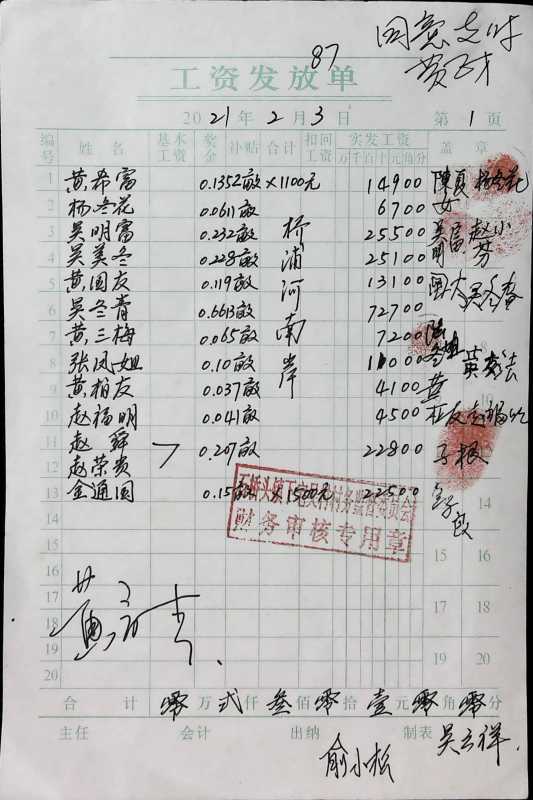 同意支付
87
工资发放单
2021年2月3日 第1页
编号 姓名 基本工资 奖金 补贴 合计 扣回工资 实发工资 盖章
万千百十元角分
1 黄希富 0.1352亩×1100元 14900
2 杨冬花 0.0611亩 6700
3 吴明富 0.232亩 25500
4 吴美冬 0.228亩 25100
5 黄国友 0.119亩 13100
6 吴冬青 0.6613亩 72700
7 黄三梅 0.065亩 7200
8 张凤姐 0.10亩 11000
9 黄柏友 0.037亩 4100
10 赵福明 0.041亩 4500
11 赵舜 0.207亩 22800
12 赵荣贵
13 金通国 0.15亩×1500元 22500
桥浦河南岸
财务审核专用章
14
15 15 16
16
17 17 18
18
19 19 20
20
合计 零万贰仟叁佰零拾壹元零角零分
主任 会计 出纳 制表
俞小松